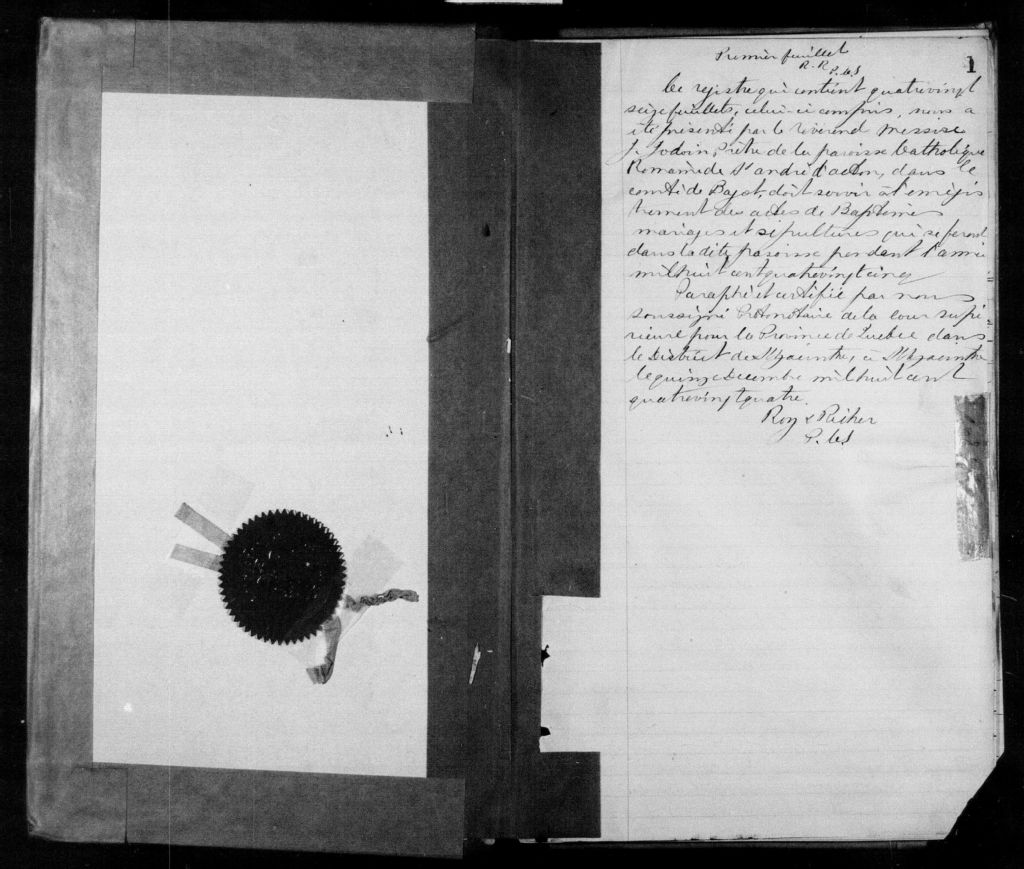 Premier feuillet
R. R.
P. C. S
1
Ce rejistre qui contient quatrevingt
seize feuillets, celui-ci compris, nous a
été présenté par le révérend Messire
J. Jodoin, Prêtre de la paroisse Catholique
Romaine de St André d'acton, dans le
comté de Bagot, doit servir à l'enrégis
trement des actes de Baptêmes
mariages et sépultures qui se feront
dans la dite paroisse pendant l'année
mil huit cent quatrevingt cinq
Paraphé et certifié par nous
soussigné Protonotaire de la cour supé-
rieure pour la Province de Quebec dans
le District de St Hyacinthe, à St Hyacinthe
le quinze Decembre mil huit cent
quatrevingt quatre.
Roy & Richer
P. C. S